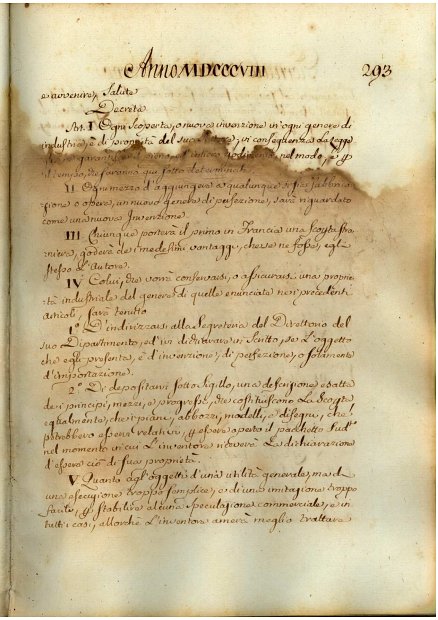 Anno MDCCCVIII 293
e avvenire, Salute
Decreta
Art. I Ogni Scoperta, o nuova invenzione in ogni genere di
industria, è di proprietà del suo Autore, in conseguenza la legge
il pieno, ed intiero nel modo, e p
il tempo, che saranno qui sotto determinati.
II Ogni mezzo d'aggiungere a qualunque siasi fabbrica=
zione o opera, un nuovo genere di perfezione, sarà riguardato
come una nuova Invenzione.
III Chiunque porterà il primo in Francia una Scoperta stra=
niera, goderà de' medesimi vantaggi, che se ne fosse, egli
stesso L'Autore.
IV Colui, che vorrà conservarsi, o assicurarsi una proprie=
tà industriale del genere di quelle enunciate nei precedenti
articoli, sarà tenuto
1.° D'indirizzarsi alla Segreteria del Direttorio del
suo Dipartimento, ed ivi dichiarare in Scritto, se L'oggetto
che egli presenta, è d'invenzione, di perfezione, o solamente
d'importazione.
2.° Di depositare sotto Sigillo, una descrizione esatta
dei principj, mezzi, e progressi, che costituiscono La Scoperta
egualmente, che i piani, abbozzi, modelli, e disegni, che
potrebbero essere relativi, p essere aperto il pacchetto Sud.°
nel momento in cui L'inventore riceverà La dichiarazione
d'essere ciò di sua proprietà.
V Quanto agl'oggetti d'una utilità generale, ma di
una esecuzione troppo semplice, e di una imitazione troppo
facile, p stabilire alcuna speculazione commerciale, e in
tutti i casi, allorchè L'inventore amerà meglio trattare